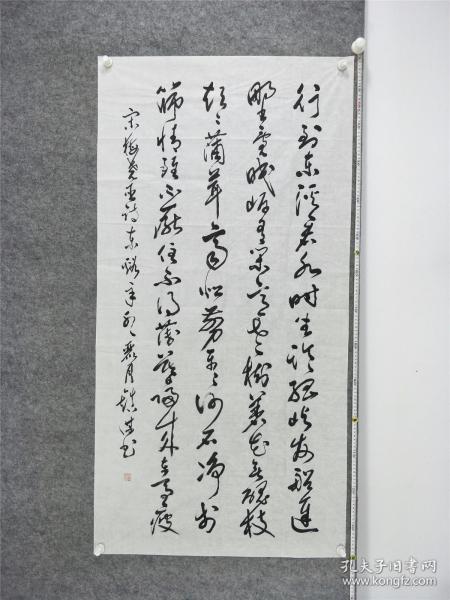 行到东溪看水时坐临孤屿发船迟
野凫眠岸有闲意老树着花无醜枝
短々蒲茸齐似剪平々沙石净于
筛情虽不厌住不得薄暮归来车马疲
宋梅尧臣诗东溪
孔夫子旧书网
www.kongfz.com